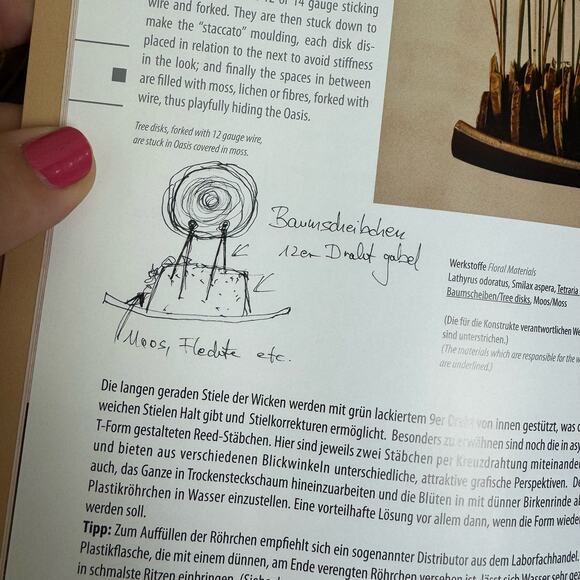 12 or 14 gauge sticking
wire and forked. They are then stuck down to
make the “staccato” moulding, each disk dis-
placed in relation to the next to avoid stiffness
in the look; and finally the spaces in between
are filled with moss, lichen or fibres, forked with
wire, thus playfully hiding the Oasis.
Tree disks, forked with 12 gauge wire,
are stuck in Oasis covered in moss.
Baumscheibchen
12er Draht gabel
Moos, Flechte etc.
Werkstoffe Floral Materials
Lathyrus odoratus, Smilax aspera, Tetraria
Baumscheiben/Tree disks, Moos/Moss
(Die für die Konstrukte verantwortlichen We
sind unterstrichen.)
(The materials which are responsible for the w
are underlined.)
Die langen geraden Stiele der Wicken werden mit grün lackiertem 9er Draht von innen gestützt, was d
weichen Stielen Halt gibt und Stielkorrekturen ermöglicht. Besonders zu erwähnen sind noch die in asy
T-Form gestalteten Reed-Stäbchen. Hier sind jeweils zwei Stäbchen per Kreuzdrahtung miteinander
und bieten aus verschiedenen Blickwinkeln unterschiedliche, attraktive grafische Perspektiven. De
auch, das Ganze in Trockensteckschaum hineinzuarbeiten und die Blüten in mit dünner Birkenrinde ab
Plastikröhrchen in Wasser einzustellen. Eine vorteilhafte Lösung vor allem dann, wenn die Form wieder
werden soll.
Tipp: Zum Auffüllen der Röhrchen empfiehlt sich ein sogenannter Distributor aus dem Laborfachhandel.
Plastikflasche, die mit einem dünnen, am Ende verengten Röhrchen versehen ist, lässt sich Wasser sehr
in schmalste Ritzen einbringen. (Siehe